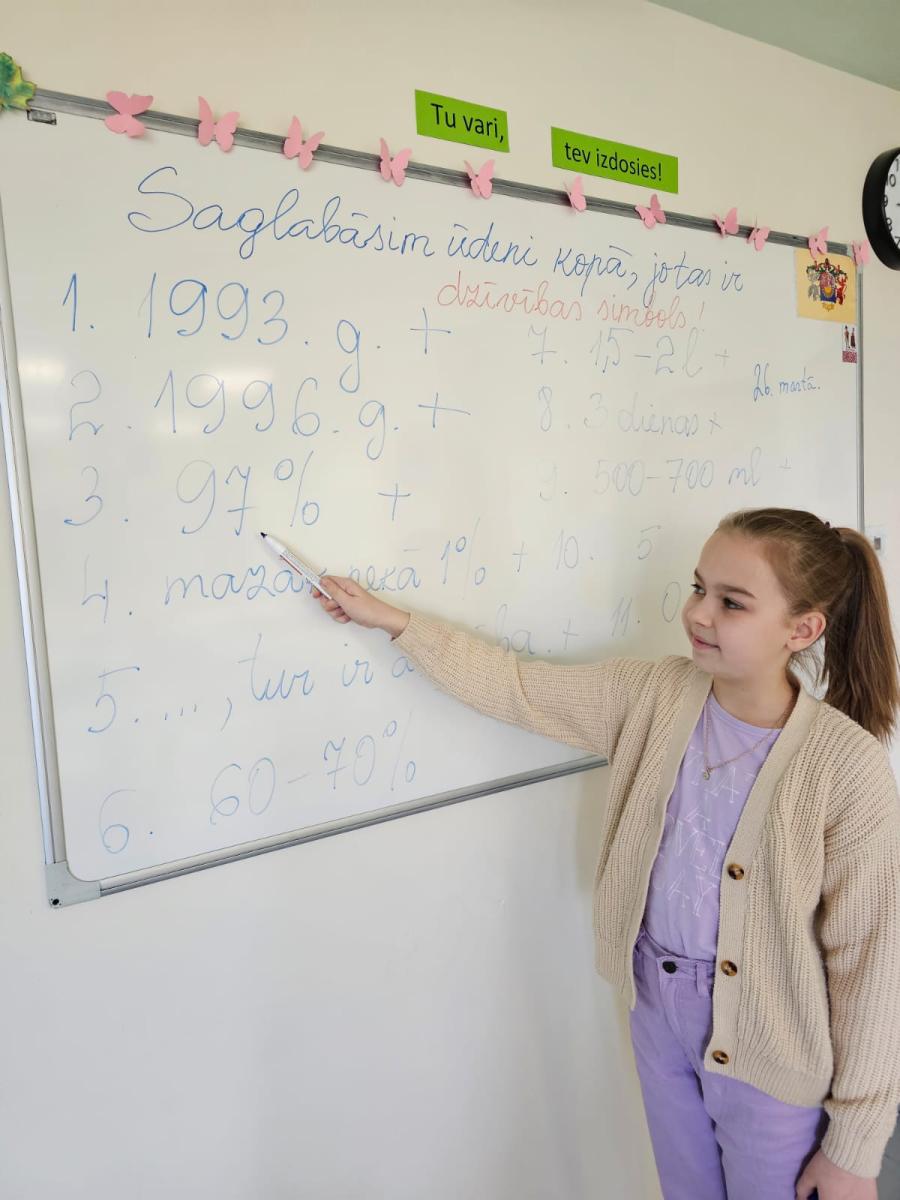 Tu vari,
tev izdosies!
Saglabāsim ūdeni kopā, jo tas ir
dzīvības simbols!
1. 1993. g. +
2. 1996. g. +
3. 97% +
4. mazāk nekā 1% +
5. ..., tur ir +
6. 60-70%
7. 1,5-2l +
8. 3 dienas +
9. 500-700 ml +
10. 5
11. 0
26. martā.